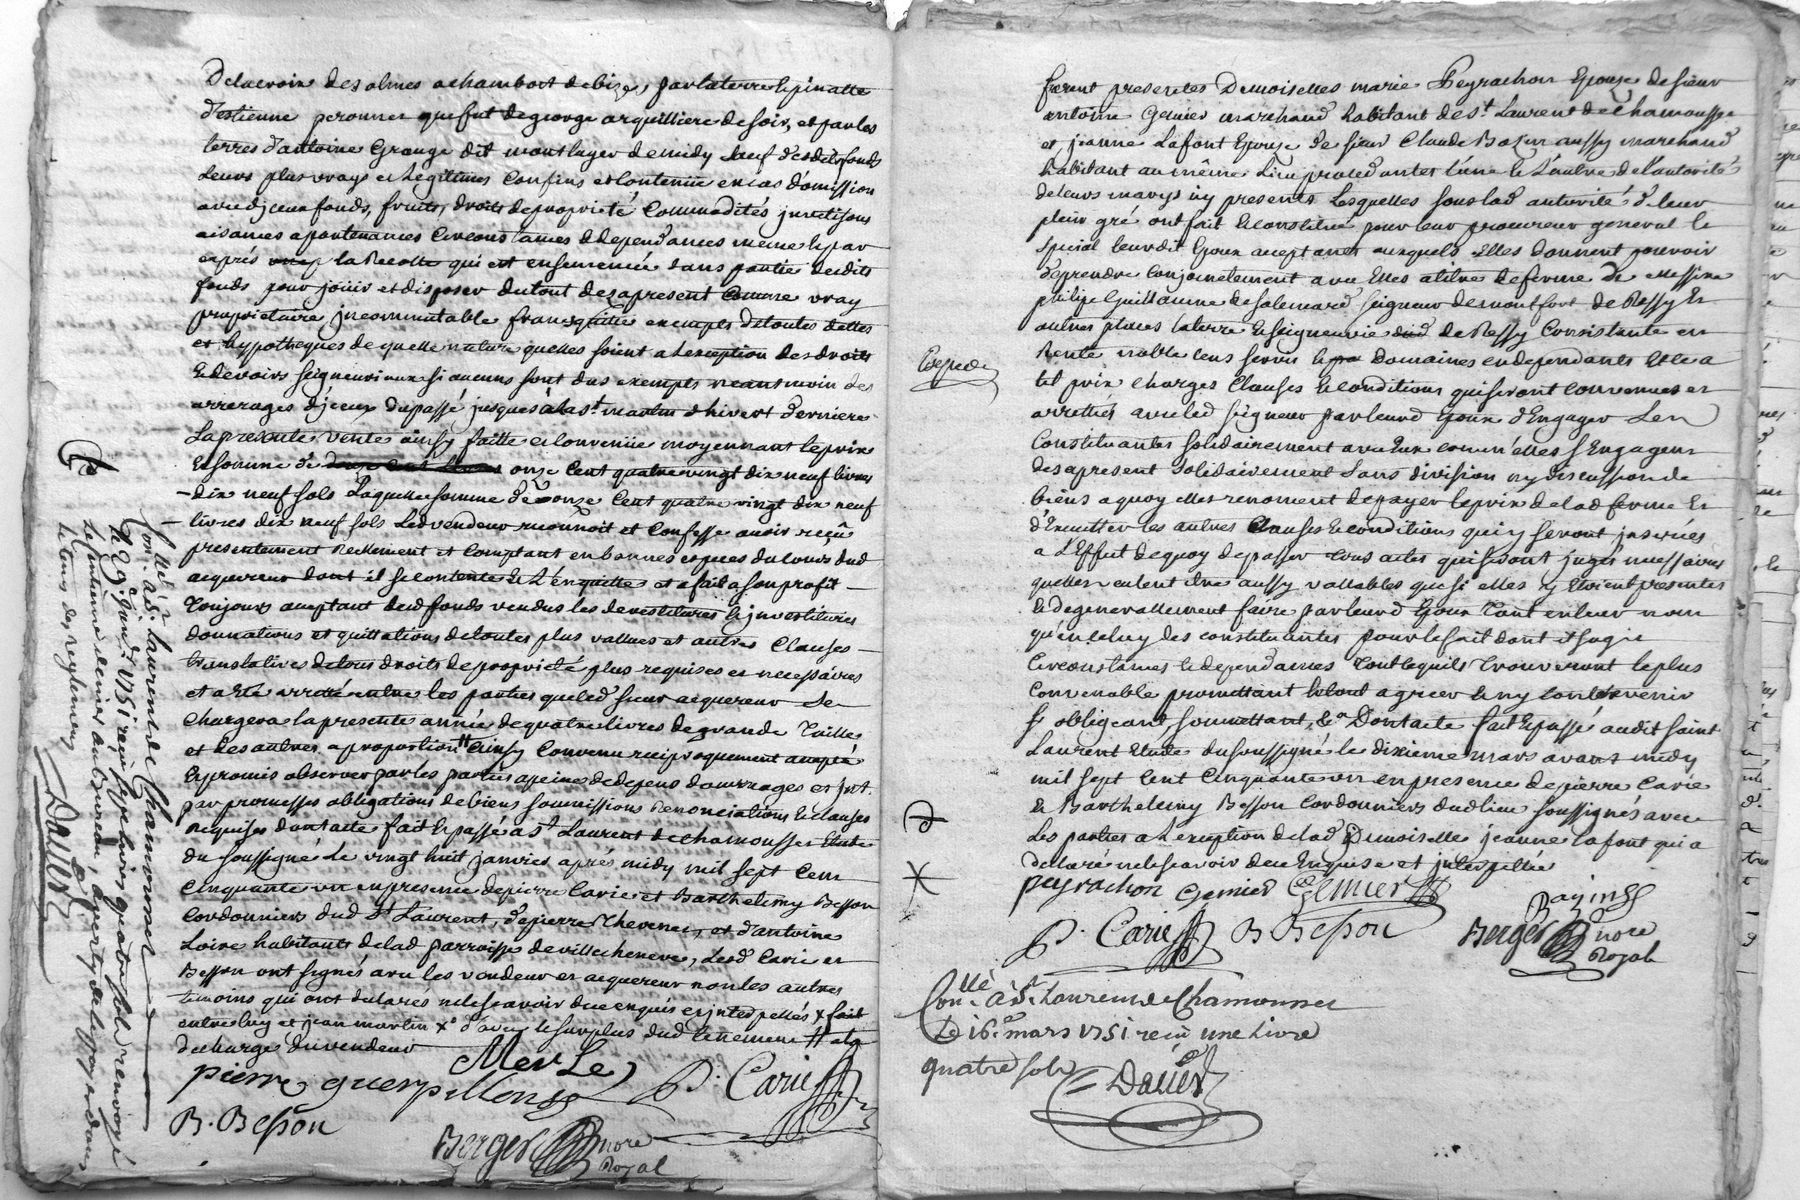 Delacroix des olmes a chambost de bize, par la terre & pinatte
d'estienne peronnet que fut de george arquilliere de soir, et par les
terres d'antoine Grange dit montluger de midy sauf desdits fonds
leurs plus vrays et legitimes confins et contenüe en cas d'omission
avec d'jceux fonds, fruits, droits de proprieté commodités jnvetisons
aisances apartenances circonstances & dependances même & par
exprés la Recolte qui est ensemencée dans partie desdits
fonds pour joüir et disposer du tout dez apresent comme vray
proprietaire jncommutable franc quitte exempts de toutes dettes
et hypotheques de quelle nature quelles soient a l'exception des droits
& devoirs seigneuriaux si aucuns sont dus exempts neantmoin des
arrerages d'jceux du passé jusques à la st martin d'hivert derniere
La presente vente ainsy faitte et convenüe moyennant le prix
& somme de onze cent quatre vingt dix neuf livres
– dix neuf sols Laquelle somme de onze cent quatre vingt dix neuf
– livres dix neuf sols led vendeur reconnoit et confesse avoir reçû
presentement reellement et comptant en bonnes especes du cours dud
acquereur dont il se contente & l'en quitte et a fait a son profit –
toujours aceptant desd fonds vendus les devestitures & jnvestitures
donnations et quittations de toutes plus vallues et autres clauses –
translatives de tous droits de proprieté plus requises et necessaires
et a eté arreté entre les parties que led sieur acquereur se
chargera la presente année de quatre livres de grande taille
et des autres a proportion # ainsy convenu reciproquement accepté
& promis observer par les parties a peine de depens dommages et jnt.
par promesses obligations de biens soummissions renonciations & clauses
requises dont acte fait & passé a St Laurent de chamousset Etude
du soussigné Le vingt huit janvier aprés midy mil sept cent
cinquante un en presence de pierre Carie et Barthelemy Besson
cordonniers dud St Laurent, de pierre Thevenet, et d'antoine
Loire habitants de lad parroisse de villechenève, Lesd Carie et
Besson ont signés avec les vendeur et acquereur non les autres
temoins qui ont declarés ne le scavoir de ce enquis et jnterpellés x fait
entre luy et jean martin x d'avec le surplus dud tenement #
decharge du vendeur
Merle
pierre guerpillon
P. Carie
B. Besson
Berger nore
Royal
Conlé. à St. Laurent de Chamousset
Le 9. e jan. er 1751 reçu
Dauier
furent presentes Demoiselles marie Peyrachon Epouse de sieur
antoine Gemier marchand habitant de St Laurent de Chamousset
et jeanne Lafont Epouse de sieur Claude Bazin aussy marchand
habitant au même lieu procedantes l'une & l'autre de l'autorité
de leurs marys jcy presents Lesquelles sous lad autorité de leur
plein gré ont fait & constitué pour leur procureur general &
special leurdit Epoux aceptants auxquels elles donnent pouvoir
de prendre conjointement avec elles a titre de ferme de Messire
philipe Guillaume de Salemard Seigneur de montfort de Ressy &
autres places la terre & seigneurie de Ressy Consistante en
Expedie
Rente noble cens servis & Domaines en dependants & ce a
tel prix charges clauses & conditions qui seront convenues et
arrettées avec led seigneur par leurd Epoux d'Engager Les
constituantes solidairement avec eux comm'elles s'Engagent
dez apresent solidairement sans division ny discussion de
biens a quoy elles renoncent de payer le prix de lad ferme &
d'executter les autres clauses & conditions qui y seront jnserées
a l'effet de quoy de passer tous actes qui seront jugés necessaires
quelles veulent etre aussy vallables que si elles y etoient presentes
& de generallement faire par leurd Epoux tant en leur nom
qu'en celuy des constituantes pour le fait dont s'agit
circonstances & dependances tout ce quils trouveront le plus
convenable promettant le tout agréer & ny contrevenir
s'obligeant soumettant, &a Dont acte fait & passé audit Saint
Laurent Etude du soussigné le dixieme mars avant midy
mil sept cent cinquante un en presence de pierre Carie
& Barthelemy Besson cordonniers dud lieu soussignés avec
Les parties a l'exception de lad Demoiselle jeanne lafont qui a
declaré ne le scavoir de ce Enquise et jnterpellée
peyrachon Gemier Gemier
Bazin
P. Carie B Besson
Berger nore
Royal
Conlé. à St. Laurent de Chamousset
Le 16. e mars 1751 reçu une Livre
quatre sols
Dauier